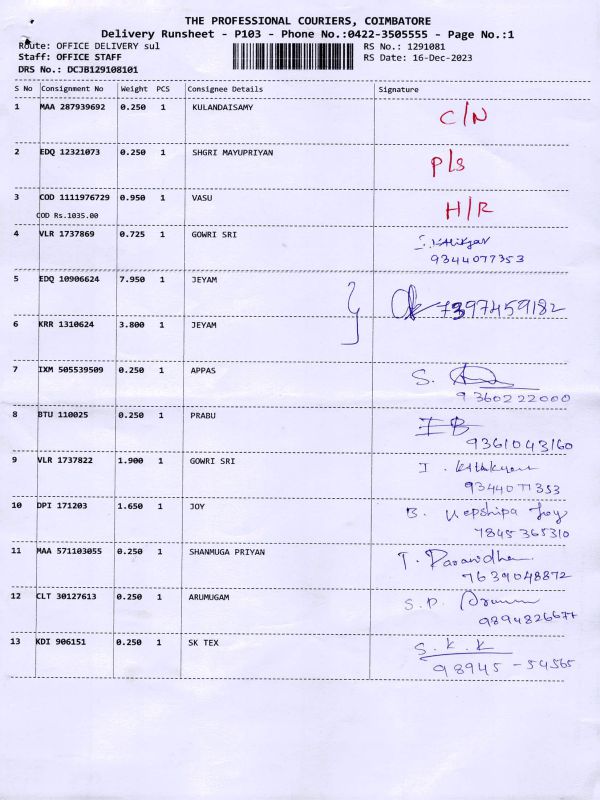 THE PROFESSIONAL COURIERS, COIMBATORE
Delivery Runsheet - P103 - Phone No.:0422-3505555 - Page No.:1
Route: OFFICE DELIVERY sul RS No.: 1291081
Staff: OFFICE STAFF RS Date: 16-Dec-2023
DRS No.: DCJB129108101
S No Consignment No Weight PCS Consignee Details Signature
1 MAA 287939692 0.250 1 KULANDAISAMY C/N
2 EDQ 12321073 0.250 1 SHGRI MAYUPRIYAN P/S
3 COD 1111976729 0.950 1 VASU H/R
COD Rs.1035.00
4 VLR 1737869 0.725 1 GOWRI SRI
9344077353
5 EDQ 10906624 7.950 1 JEYAM 7397459182
6 KRR 1310624 3.800 1 JEYAM
7 IXM 505539509 0.250 1 APPAS S.
9360222000
8 BTU 110025 0.250 1 PRABU
9361043160
9 VLR 1737822 1.900 1 GOWRI SRI
9344077353
10 DPI 171203 1.650 1 JOY B. Hepshipa Joy
7845365310
11 MAA 571103055 0.250 1 SHANMUGA PRIYAN T.
7639048872
12 CLT 30127613 0.250 1 ARUMUGAM S.P.
13 KDI 906151 0.250 1 SK TEX S.K.K
98945-54565